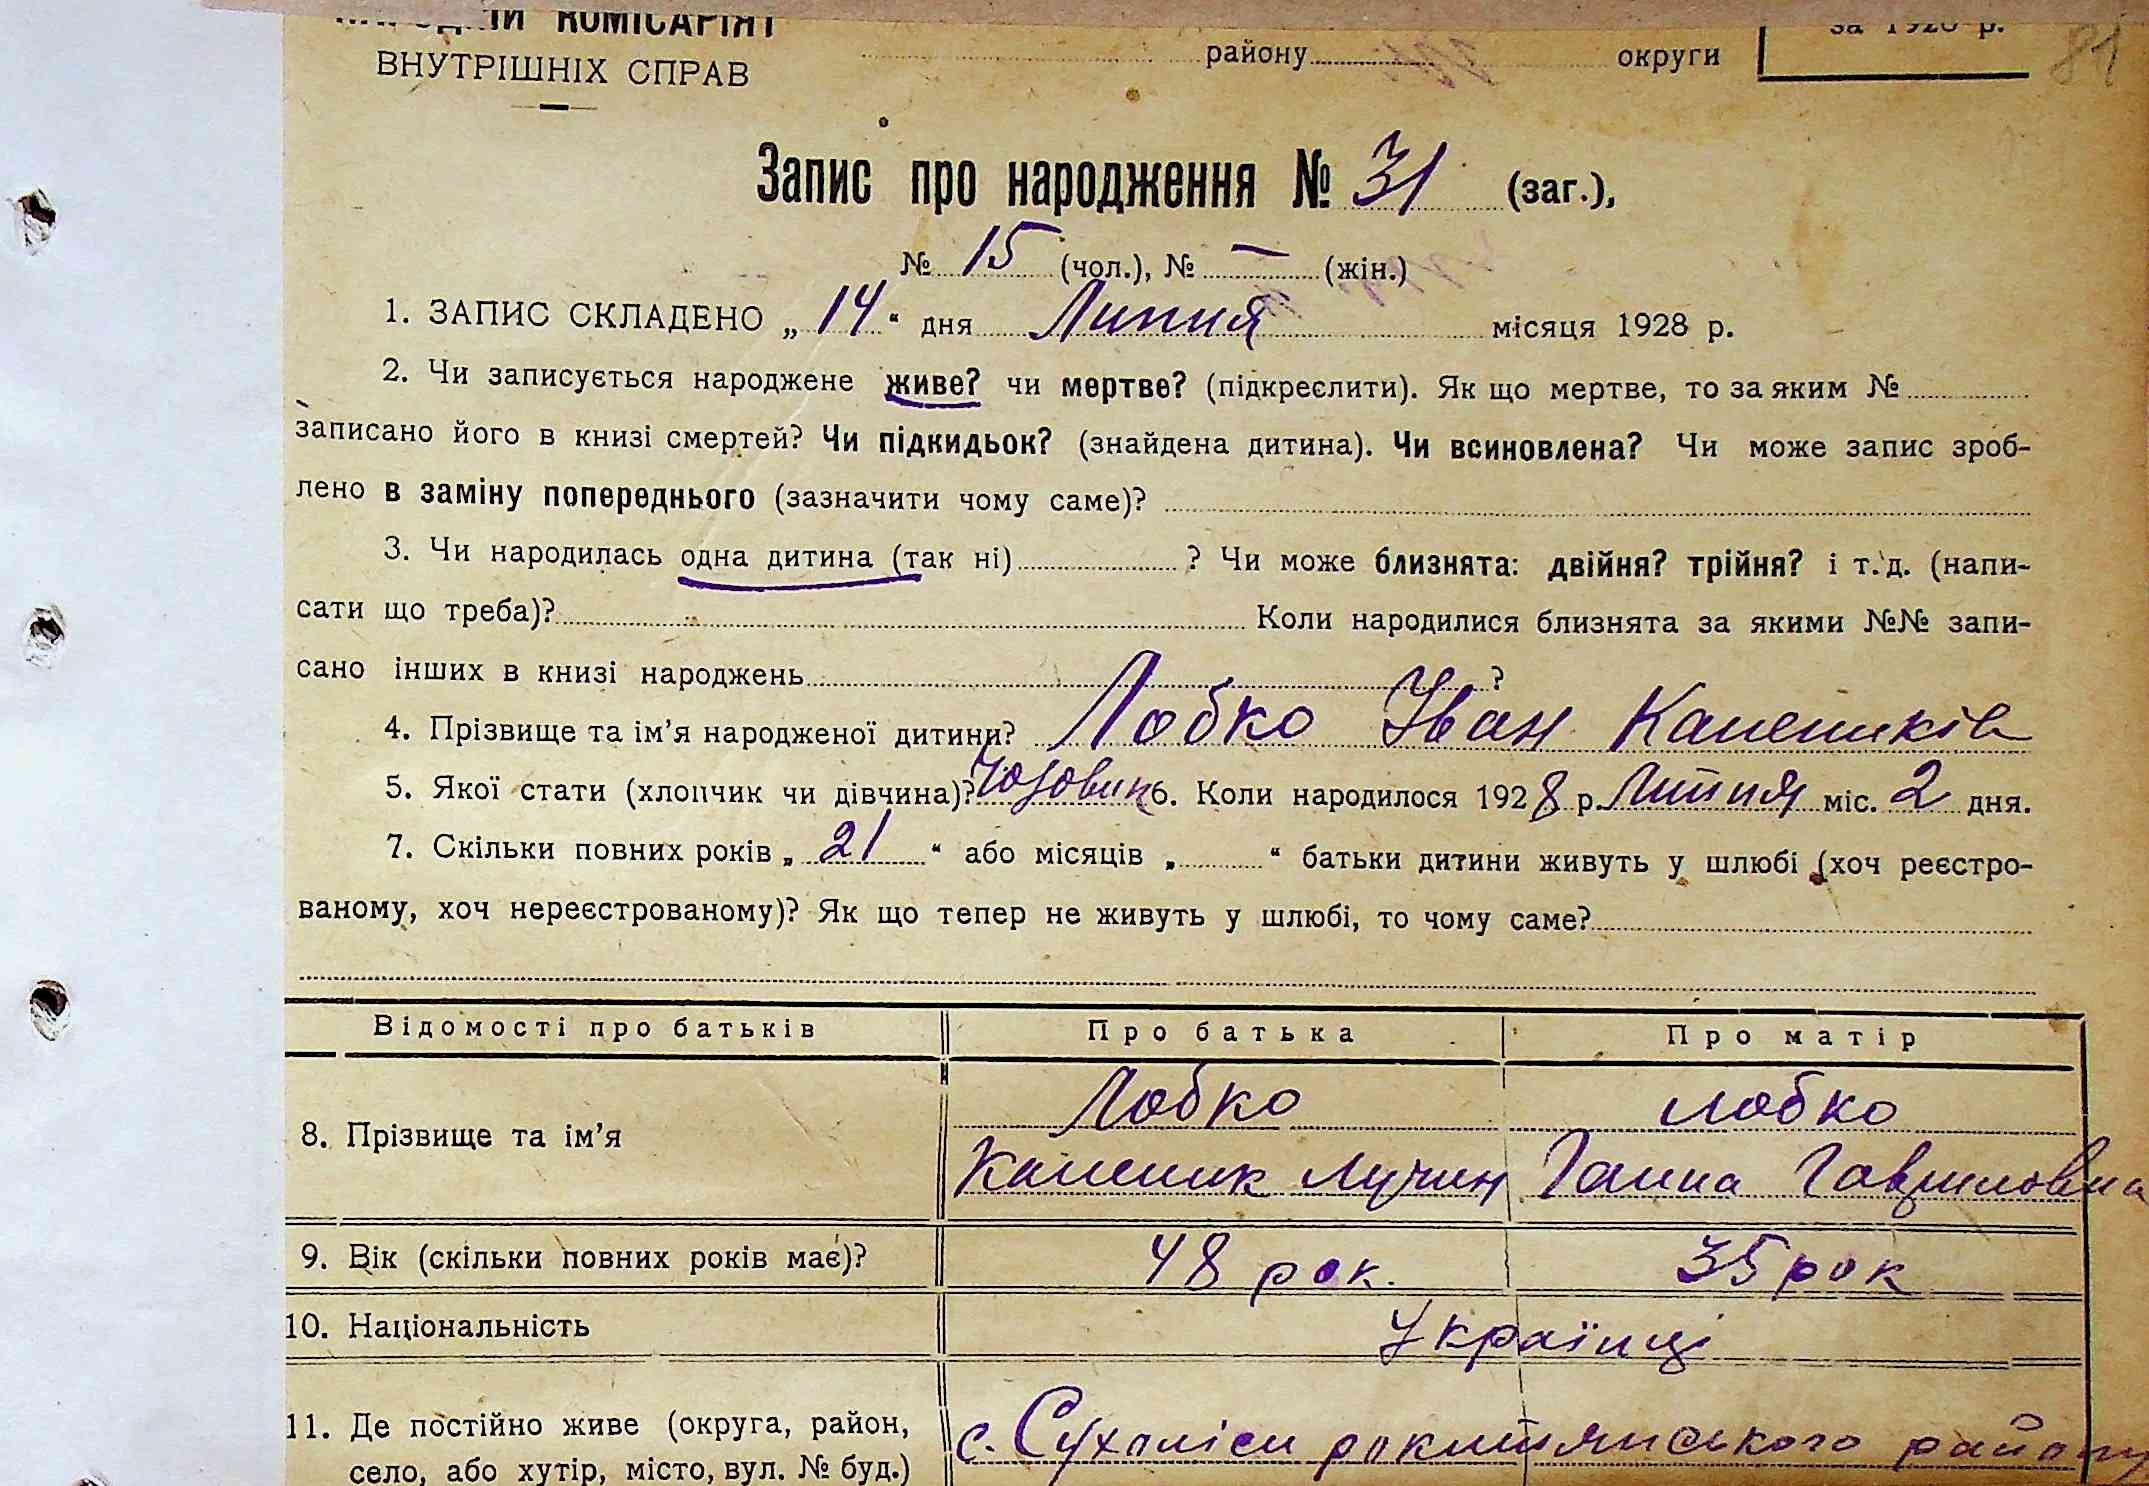 НАРОДНИЙ КОМІСАРІЯТ
ВНУТРІШНІХ СПРАВ
району округи
за 1928 р.
81
Запис про народження № 31 (заг.),
№ 15 (чол.), № — (жін.)
1. ЗАПИС СКЛАДЕНО „ 14 “ дня Липня місяця 1928 р.
2. Чи записується народжене живе? чи мертве? (підкреслити). Як що мертве, то за яким №
записано його в книзі смертей? Чи підкидьок? (знайдена дитина). Чи всиновлена? Чи може запис зроб-
лено в заміну попереднього (зазначити чому саме)?
3. Чи народилась одна дитина (так ні) ? Чи може близнята: двійня? трійня? і т. д. (напи-
сати що треба)? Коли народилися близнята за якими №№ запи-
сано інших в книзі народжень ?
4. Прізвище та ім’я народженої дитини? Лобко Іван Калеників
5. Якої стати (хлопчик чи дівчина)? Чоловик 6. Коли народилося 1928 р. Липня міс. 2 дня.
7. Скільки повних років „ 21 “ або місяців „ “ батьки дитини живуть у шлюбі (хоч реєстро-
ваному, хоч нереєстрованому)? Як що тепер не живуть у шлюбі, то чому саме?
Відомості про батьків Про батька Про матір
8. Прізвище та ім’я Лобко Лобко
Каленик Лучин Ганна Гавриловна
9. Вік (скільки повних років має)? 48 рок. 35 рок
10. Національність Українці
11. Де постійно живе (округа, район, с. Сухаліси рокитянського району
село, або хутір, місто, вул. № буд.)